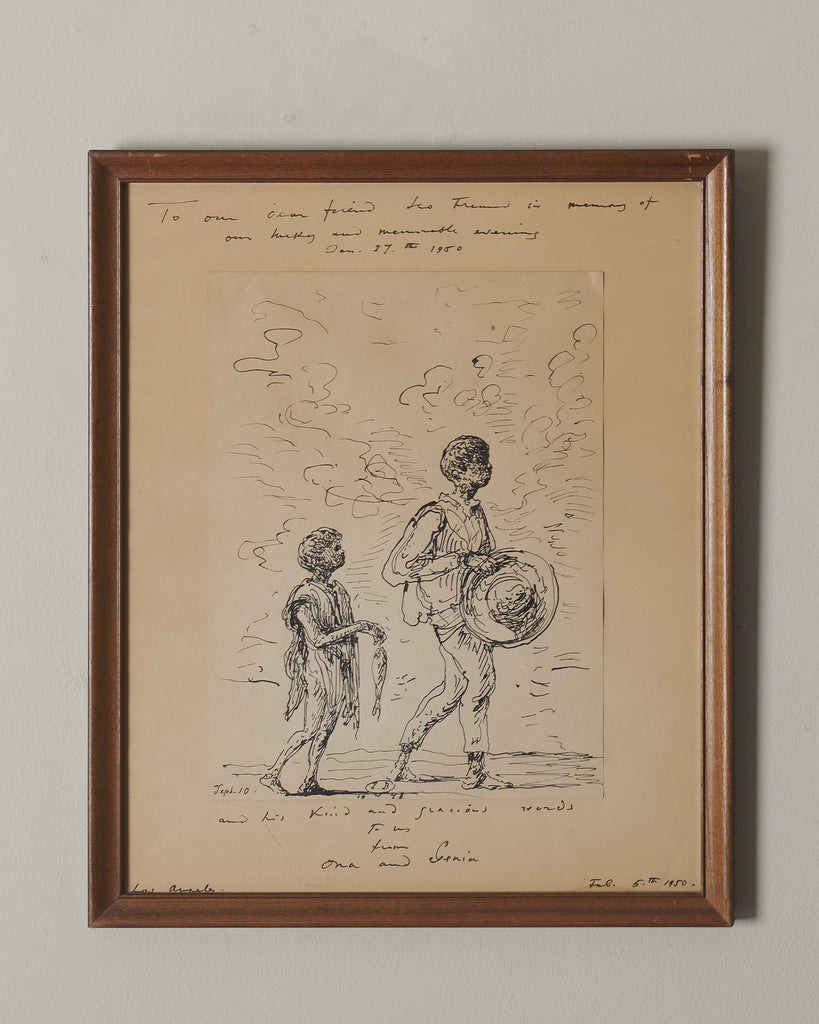 To our dear friend Leo Freund in memory of
our lucky and memorable evening
Jan. 27.th 1950
Sept. 10.
E.B
19 48
and his kind and gracious words
To us
from
Ona and Genia
Los Angeles.
Feb. 5.TH 1950.